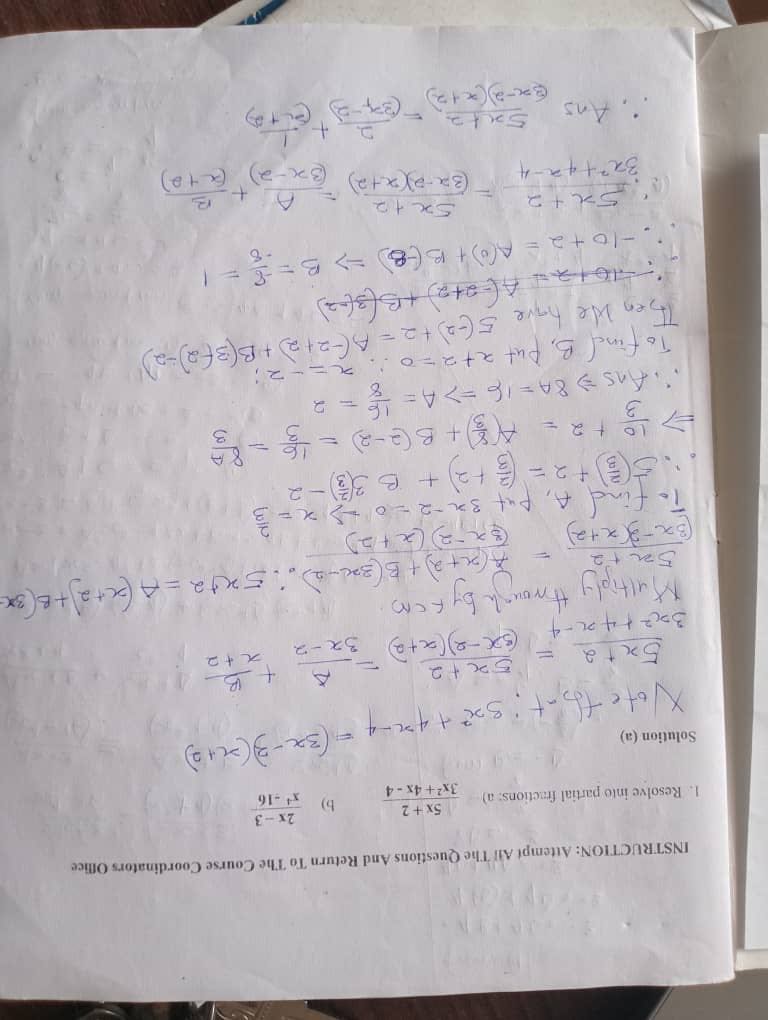 INSTRUCTION: Attempt All The Questions And Return To The Course Coordinators Office
1. Resolve into partial fractions: a) (5x + 2)/(3x² + 4x - 4) b) (2x – 3)/(x⁴ -16)
Solution (a)
Note that: 3x² + 4x - 4 = (3x-2)(x+2)
(5x+2)/(3x²+4x-4) = (5x+2)/((3x-2)(x+2)) = A/(3x-2) + B/(x+2)
Multiply through by LCM.
(5x+2)/((3x-2)(x+2)) = (A(x+2)+B(3x-2))/((3x-2)(x+2)) ∴ 5x+2 = A(x+2)+B(3x-
To find A, put 3x-2=0 => x = 2/3
∴ 5(2/3)+2 = (2/3+2) + B 3(2/3)-2
=> 10/3 + 2 = A(8/3) + B(2-2) = 16/3 = 8A/3
∴ Ans => 8A=16 => A = 16/8 = 2
To find B, put x+2=0 ∴ x=-2;
Then We have 5(-2)+2 = A(-2+2)+B(3(-2)-2)
∴ -10+2 = A(-2+2)+B(3(-2)
∴ -10+2 = A(0)+B(-8) => B = 8/-8 = 1
∴ (5x+2)/(3x²+4x-4) = (5x+2)/((3x-2)(x+2)) = A/(3x-2) + B/(x+2)
∴ Ans (5x+2)/((3x-2)(x+2)) = 2/(3x-2) + 1/(x+2)